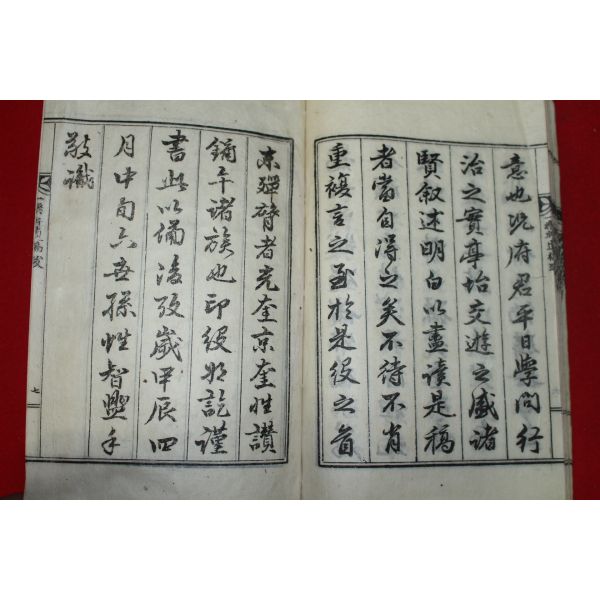 意也況府君平日學問行
治之實亭坮交遊之盛諸
賢叙述明白以盡讀是稿
者當自得之矣不待不肖
重複言之至於是役之首
末殫膂者光奎京奎性讚
鏞平諸族也印役才訖謹
書此以備後攷歲甲辰四
月中旬六世孫性智盥手
敬識
七